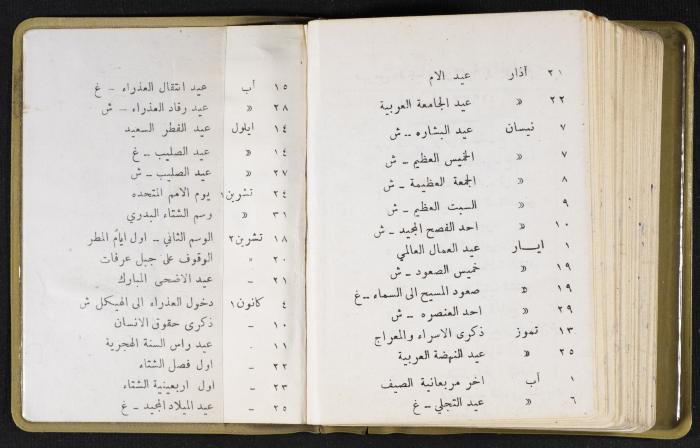 ٢١ آذار عيد الام
٢٢ « عيد الجامعة العربية
٧ نيسان عيد البشاره -- ش
٧ « الخميس العظيم - ش
٨ « الجمعة العظيمة - ش
٩ « السبت العظيم - ش
١٠ « احد الفصح المجيد - ش
١ ايــار عيد العمال العالمي
١٩ « خميس الصعود - ش
١٩ « صعود المسيح الى السماء -- غ
٢٩ « احد العنصره -- ش
١٣ تموز ذكرى الاسراء والمعراج
٢٥ « عيد النهضة العربية
١ آب اخر مربعانية الصيف
٦ « عيد التجلي -- غ
١٥ آب عيد انتقال العذراء - غ
٢٨ « عيد رقاد العذراء - ش
١٤ ايلول عيد الفطر السعيد
١٤ « عيد الصليب -- غ
٢٧ « عيد الصليب - ش
٢٤ تشرين١ يوم الامم المتحده
٣١ « وسم الشتاء البدري
١٨ تشرين٢ الوسم الثاني -- اول ايام المطر
٢٠ « الوقوف على جبل عرفات
٢١ - عيد الاضحى المبارك
٤ كانون١ دخول العذراء الى الهيكل ش
١٠ - ذكرى حقوق الانسان
١١ . عيد راس السنة الهجرية
٢٢ - اول فصل الشتاء
٢٣ - اول اربعينية الشتاء
٢٥ - عيد الميلاد المجيد - غ